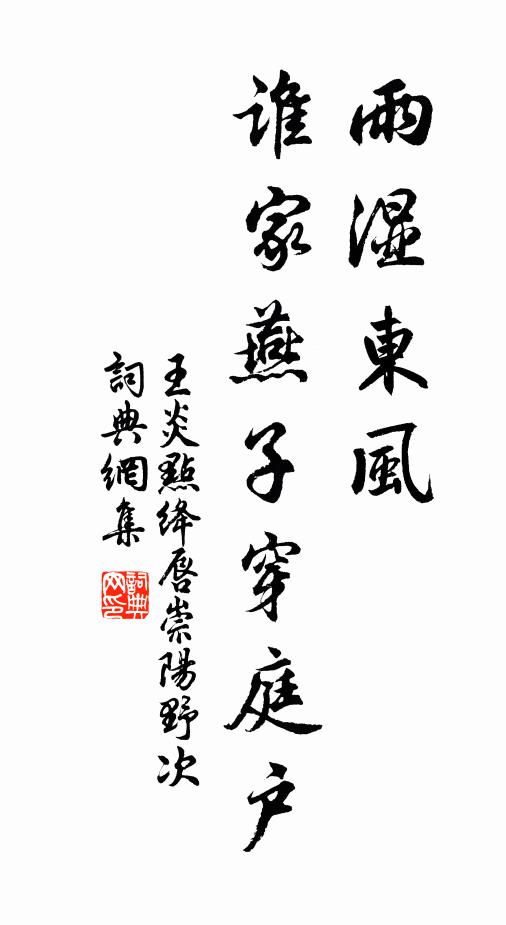 雨濕東風
誰家燕子穿庭戶
王炎點絳唇崇陽野次
詞典網集
詞典
网印